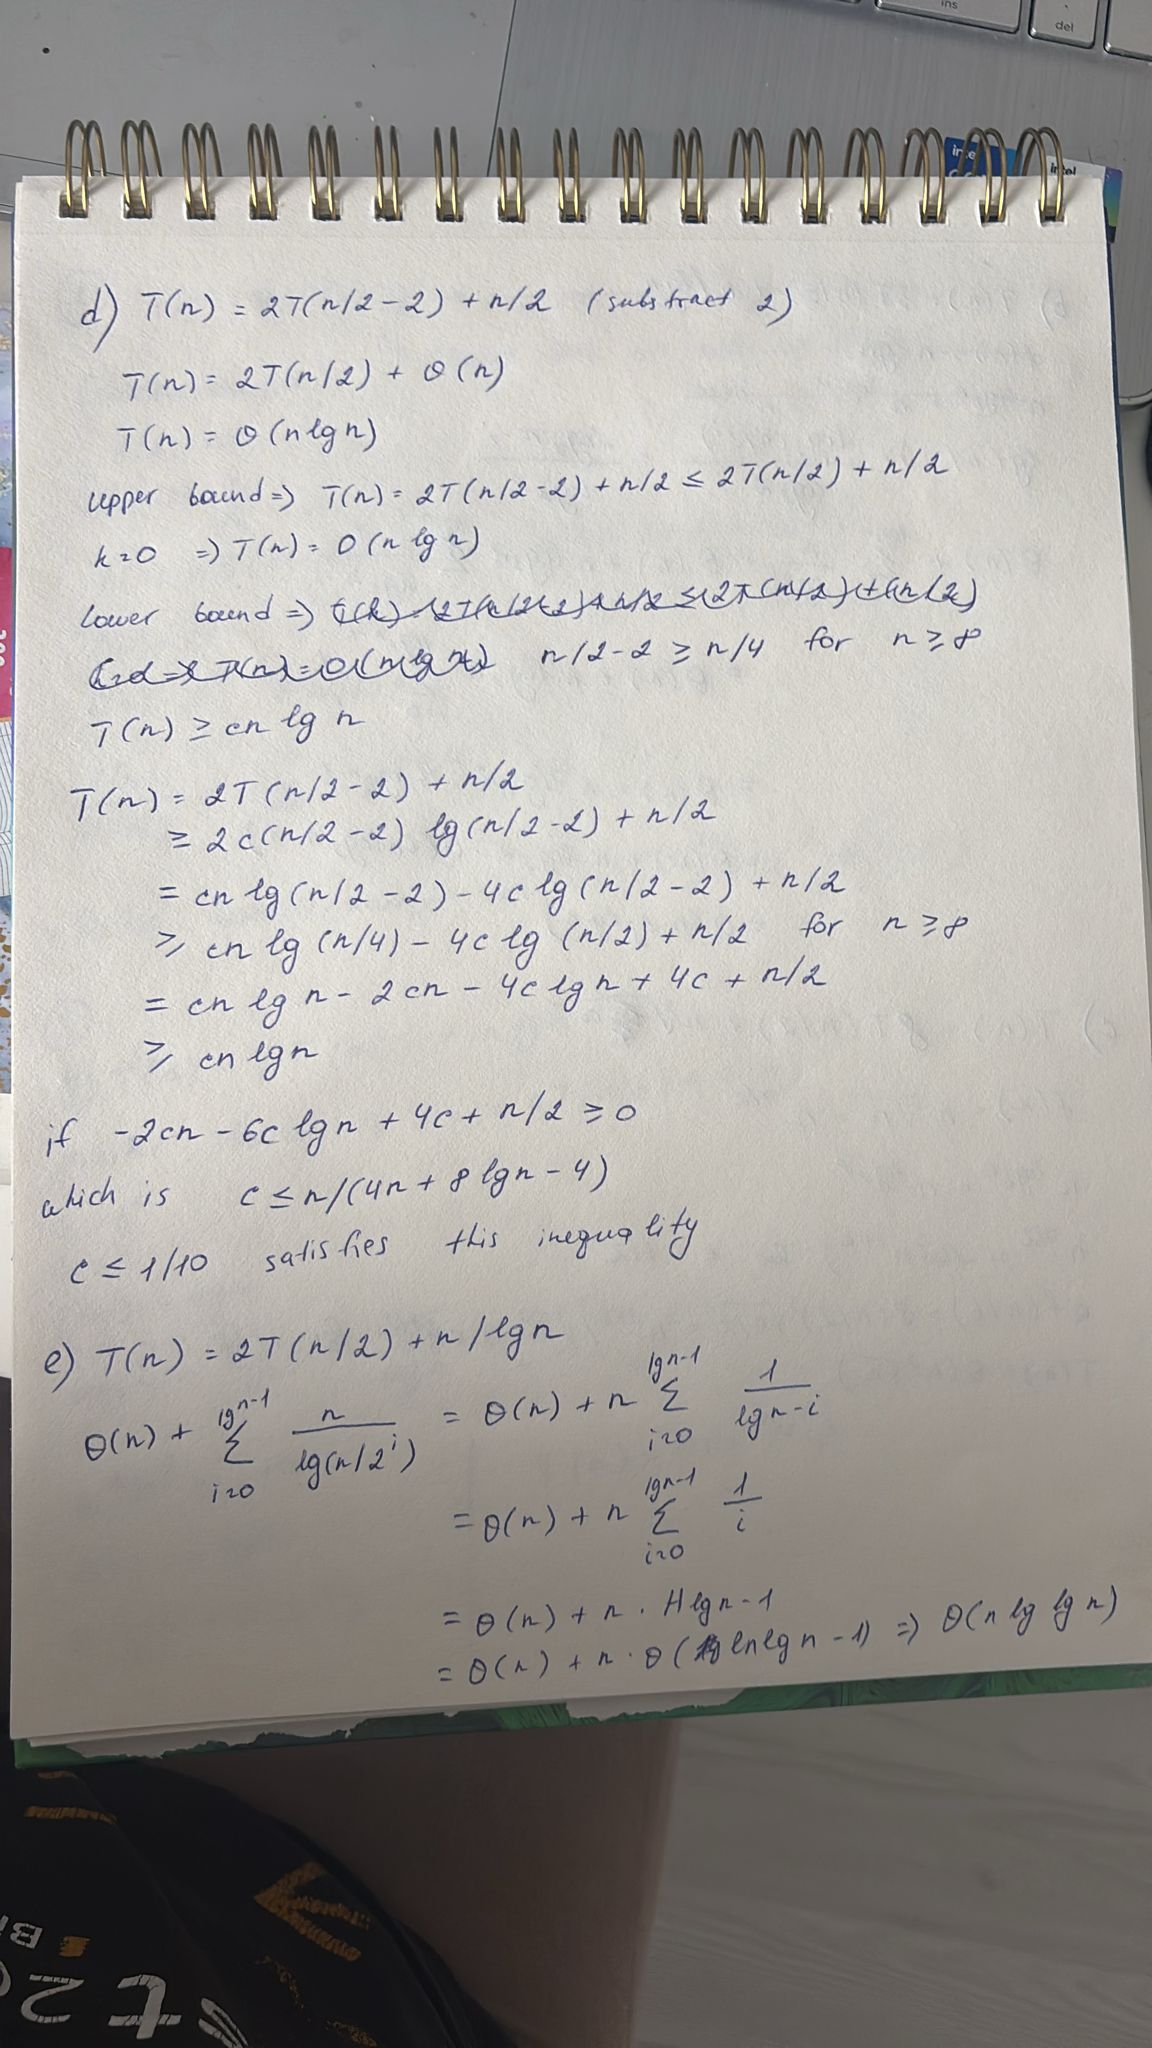 ins
del
intel
intel
d) T(n) = 2T(n/2-2) + n/2 (substract 2)
T(n) = 2T(n/2) + Θ(n)
T(n) = Θ(n lg n)
upper bound ⇒ T(n) = 2T(n/2-2) + n/2 ≤ 2T(n/2) + n/2
k=0 ⇒ T(n) = O(n lg n)
lower bound ⇒
n/2-2 ≥ n/4 for n ≥ 8
T(n) ≥ cn lg n
T(n) = 2T(n/2-2) + n/2
≥ 2c(n/2-2) lg(n/2-2) + n/2
= cn lg(n/2-2) - 4c lg(n/2-2) + n/2
≥ cn lg(n/4) - 4c lg(n/2) + n/2 for n ≥ 8
= cn lg n - 2cn - 4c lg n + 4c + n/2
≥ cn lg n
if -2cn - 6c lgn + 4c + n/2 ≥ 0
which is c ≤ n/(4n + 8 lgn - 4)
c ≤ 1/10 satisfies this inequality
e) T(n) = 2T(n/2) + n/lgn
Θ(n) + ∑_{i=0}^{lgn-1} n/lg(n/2^i) = Θ(n) + n ∑_{i=0}^{lgn-1} 1/(lgn-i)
= Θ(n) + n ∑_{i=0}^{lgn-1} 1/i
= Θ(n) + n · H lgn-1
= Θ(n) + n · Θ(ln lg n - 1) ⇒ Θ(n lg lg n)